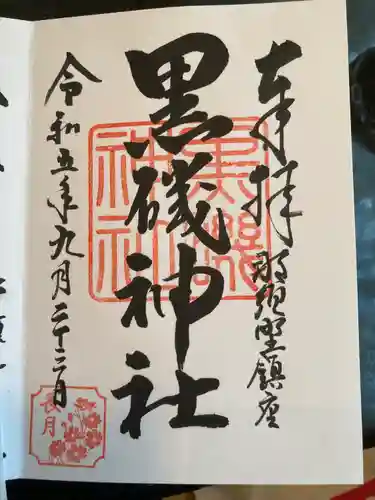 奉拝
那須野鎮座
黒磯神社
黒磯神社
令和五年九月二十二日
長月